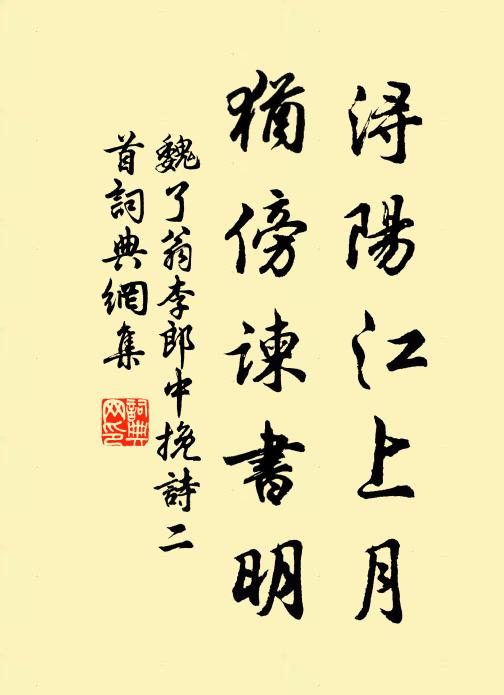 潯陽江上月
猶傍諫書明
魏了翁李郎中挽詩二
首詞典網集
詞典
网印